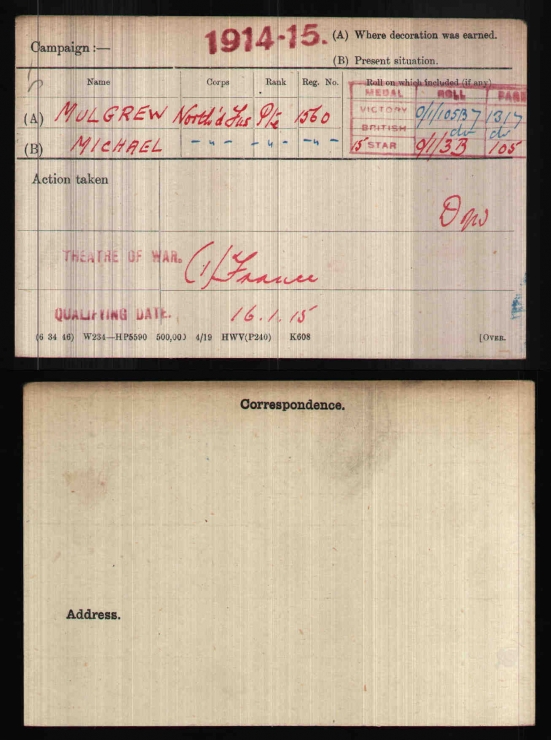 Campaign :— 1914-15. (A) Where decoration was earned.
(B) Present situation.
Name Corps Rank Reg. No. Roll on which included (if any).
MEDAL ROLL PAGE
(A) MULGREW North'd Fus Pte 1560 VICTORY O/1/105B7 1317
BRITISH do do
(B) MICHAEL -"- -"- -"- 15 STAR O/1/3B 105
Action taken
Dow
THEATRE OF WAR. (1) France
QUALIFYING DATE. 16.1.15
(6 34 46) W234—HP5590 500,000 4/19 HWV(P240) K608 [OVER.
Correspondence.
Address.